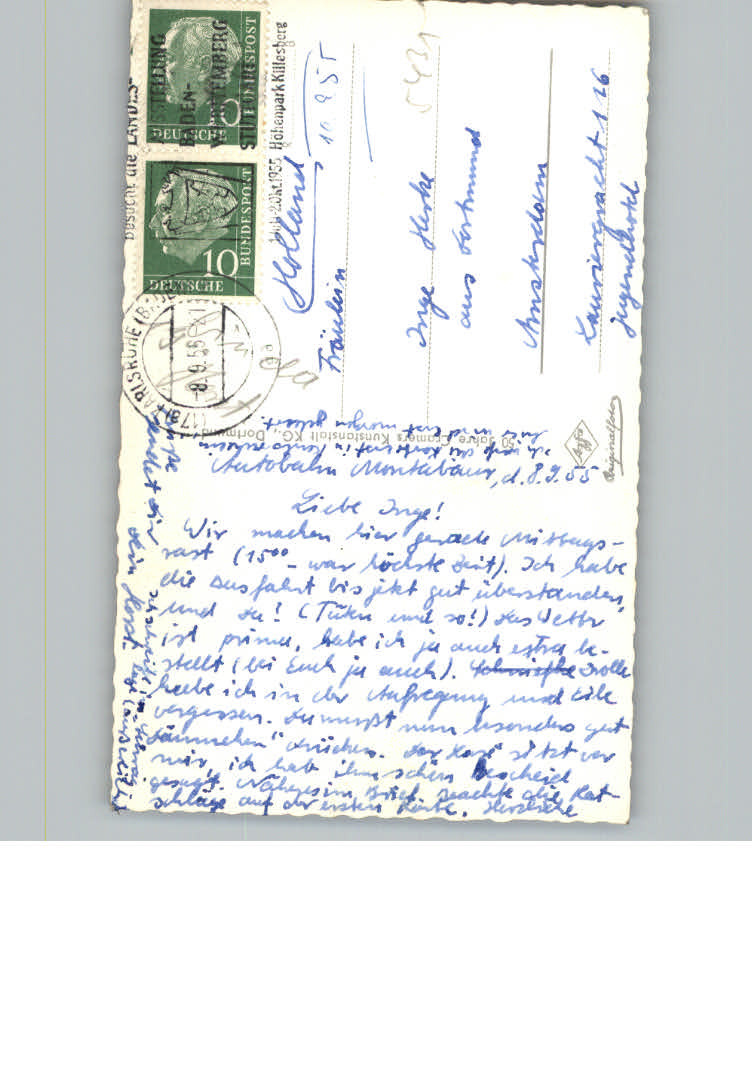 Autobahn Montabaur, d. 8.9.55
Liebe Inge!
Wir machen hier gerade Mittags-
rast (15⁰⁰ – war höchste Zeit). Ich habe
die Ausfahrt bis jetzt gut überstanden,
und Du! (Tüku und so!) Das Wetter
ist prima, habe ich ja auch extra be-
stellt (bei Euch ja auch). Trolle
habe ich in der Aufregung und Eile
vergessen. Du mußt nun besonders gut
"Däumchen" drücken. sitzt vor
mir, ich hab ihm schon Bescheid
gesagt. Näheres im Brief, beachte die Rat-
schläge auf der ersten Karte. Herzliche
Grüße
sendet Dir
Dein Horst
Holland
10.9.55
5431
Fräulein
Inge
aus Dortmund
Amsterdam
Lauriergracht 116
Jugendhotel
50 Jahre Cramers Kunstanstalt KG., Dortmund
effky
Originalfoto
Besucht die LANDES-
AUSSTELLUNG
BADEN-
WÜRTTEMBERG
STUTTGART
Okt. 1955 Höhenpark Killesberg
DEUTSCHE BUNDESPOST
10
DEUTSCHE BUNDESPOST
10
(17a) KARLSRUHE (BADEN)
-8.9.55